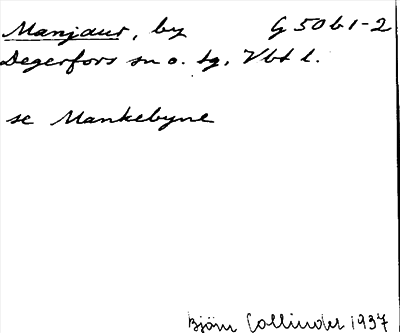 Manjaur, by G 50 b 1-2
Degerfors sn o. tg. Vbt l.
se Mankebyne
Björn Collinder 1937